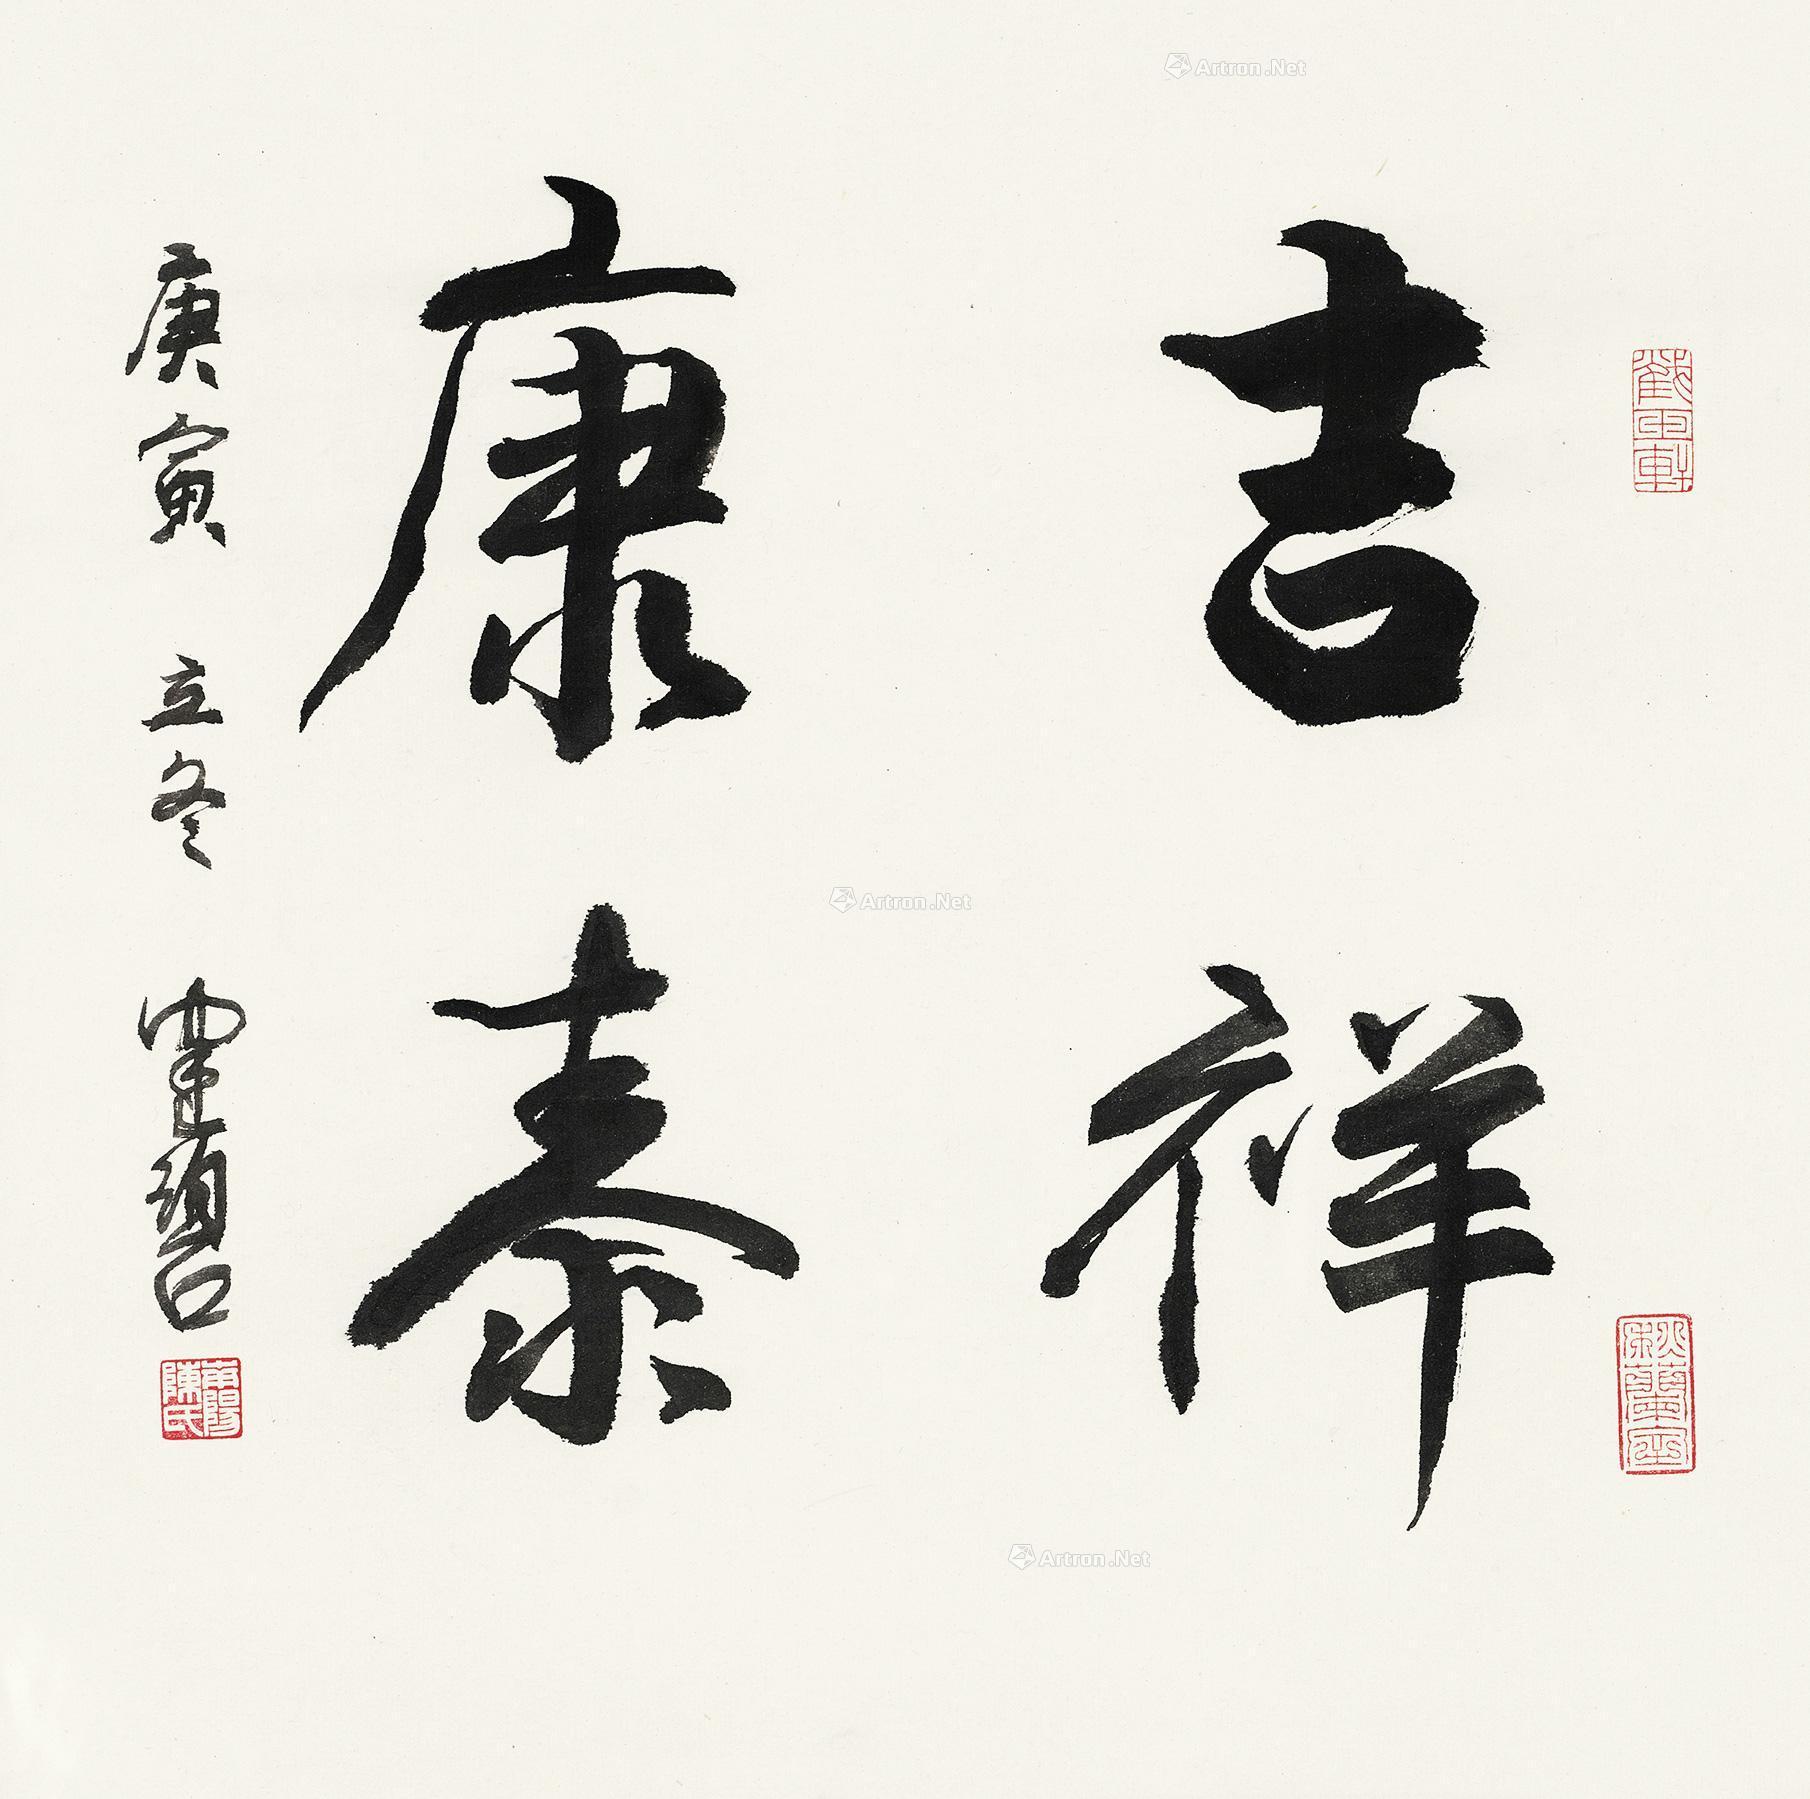 吉祥
康泰
庚寅 立冬
南陽陳氏
Artron.Net
Artron.Net
Artron.Net